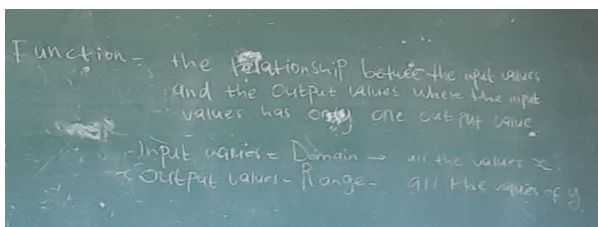 Function - the relationship betwee the input values
and the output values where the input
values has only one output value
- Input values = Domain → all the values x.
Output values - Range - all the values of y